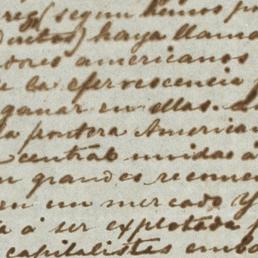 (segun hemos
) haya llama
dores americanos
de la efervescencia
ganar en ellas.
la frontera American
central unidas á
grandes recom
en un mercado y
á ser explotada
capitalistas emba